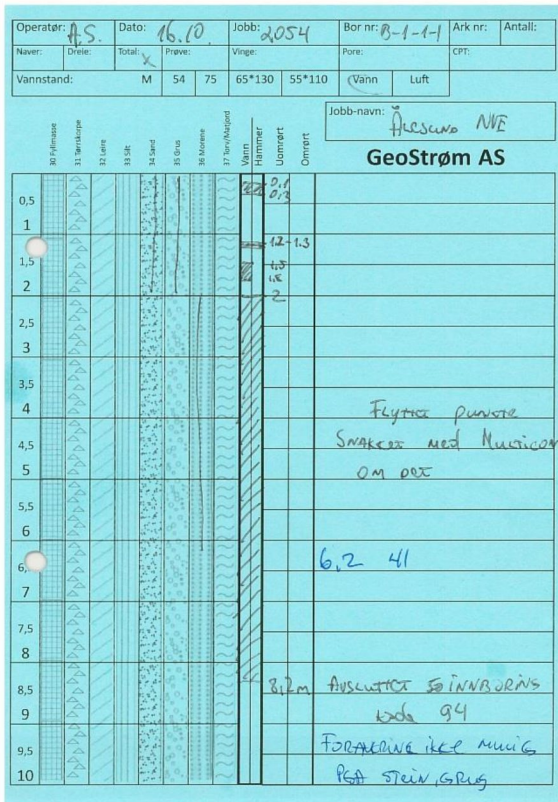 Operatør: A.S. Dato: 16.10 Jobb: 2054 Bor nr: B-1-1-1 Ark nr: Antall:
Naver: Dreie: Total: X Prøve: Vinge: Pore: CPT:
Vannstand: M 54 75 65*130 55*110 Vann Luft
Jobb-navn: Ålesund NVE
GeoStrøm AS
30 Fyllmasse
31 Tørrskorpe
32 Leire
33 Silt
34 Sand
35 Grus
36 Morene
37 Torv/Matjord
Vann
Hammer
Uomrørt
Omrørt
0,1
0,5 0,3
1
1.2-1.3
1,5 1,5
1,8
2 2
2,5
3
3,5
4 Flyttet punkte
4,5 Snakket med Multicon
5 om det
5,5
6
6, 6,2 41
7
7,5
8
8,5 8,2m Avsluttet innboring
9 kode 94
9,5 Forankring ikke mulig
10 PGA Stein, grus